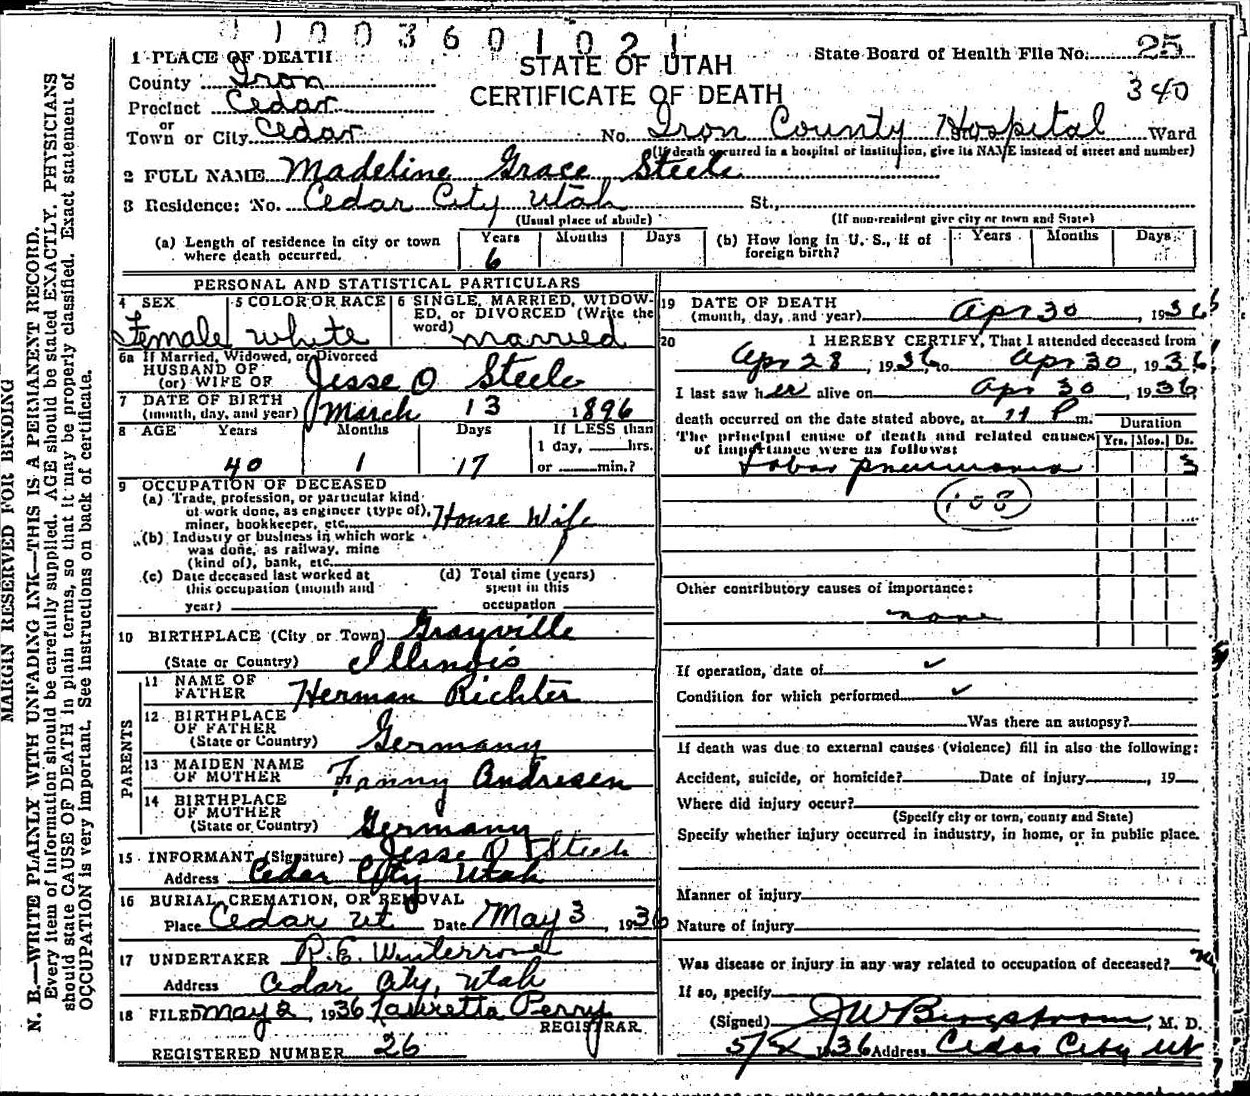 0 1 0 0 3 6 0 1 0 2 1
1 PLACE OF DEATH
STATE OF UTAH
State Board of Health File No. 25
County Iron
CERTIFICATE OF DEATH
340
Precinct Cedar
or
Town or City Cedar No. Iron County Hospital St. Ward
(If death occurred in a hospital or institution, give its NAME instead of street and number)
2 FULL NAME Madeline Grace Steele
3 Residence: No. Cedar City Utah St.,
(Usual place of abode) (If non-resident give city or town and State)
(a) Length of residence in city or town where death occurred. Years 6 Months Days
(b) How long in U. S., if of foreign birth? Years Months Days
PERSONAL AND STATISTICAL PARTICULARS
4 SEX Female
5 COLOR OR RACE White
6 SINGLE, MARRIED, WIDOWED, or DIVORCED (Write the word) married
6a If Married, Widowed, or Divorced
HUSBAND OF
(or) WIFE OF Jesse O Steele
7 DATE OF BIRTH
(month, day, and year) March 13 1896
8 AGE Years Months Days If LESS than
1 day, hrs.
40 1 17 or min.?
9 OCCUPATION OF DECEASED
(a) Trade, profession, or particular kind
of work done, as engineer (type of),
miner, bookkeeper, etc. House Wife
(b) Industry or business in which work
was done, as railway, mine
(kind of), bank, etc.
(c) Date deceased last worked at
this occupation (month and
year)
(d) Total time (years)
spent in this
occupation
10 BIRTHPLACE (City or Town) Grayville
(State or Country) Illinois
PARENTS
11 NAME OF
FATHER Herman Richter
12 BIRTHPLACE
OF FATHER
(State or Country) Germany
13 MAIDEN NAME
OF MOTHER Fanny Andresen
14 BIRTHPLACE
OF MOTHER
(State or Country) Germany
15 INFORMANT (Signature) Jesse O Steele
Address Cedar City Utah
16 BURIAL, CREMATION, OR REMOVAL
Place Cedar Ut Date May 3, 1936
17 UNDERTAKER R.E. Winterrose
Address Cedar City, Utah
18 FILED May 2, 1936 Lauretta Perry
REGISTRAR
REGISTERED NUMBER 26
19 DATE OF DEATH
(month, day, and year) Apr 30, 1936
20 I HEREBY CERTIFY, That I attended deceased from
Apr 28, 1936, to Apr 30, 1936
I last saw her alive on Apr 30, 1936
death occurred on the date stated above, at 11 P m.
The principal cause of death and related causes
of importance were as follows:
Duration
Yrs. Mos. Ds.
Lobar pneumonia 3
108
Other contributory causes of importance:
none
If operation, date of ✓
Condition for which performed ✓
Was there an autopsy?
If death was due to external causes (violence) fill in also the following:
Accident, suicide, or homicide? Date of injury , 19
Where did injury occur?
(Specify city or town, county and State)
Specify whether injury occurred in industry, in home, or in public place.
Manner of injury
Nature of injury
Was disease or injury in any way related to occupation of deceased? no
If so, specify
(Signed) J W Bergstrom, M. D.
5/2 1936 Address Cedar City Ut
MARGIN RESERVED FOR BINDING
N. B.—WRITE PLAINLY WITH UNFADING INK—THIS IS A PERMANENT RECORD.
Every item of information should be carefully supplied. AGE should be stated EXACTLY. PHYSICIANS
should state CAUSE OF DEATH in plain terms, so that it may be properly classified. Exact statement of
OCCUPATION is very important. See instructions on back of certificate.